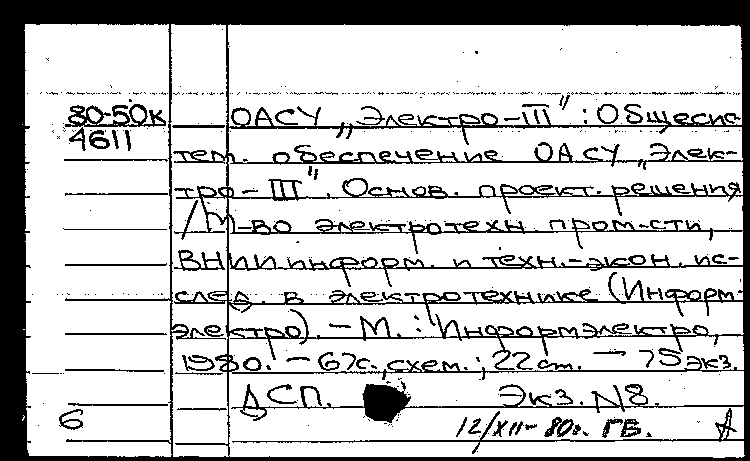 80-50к ОАСУ „Электро-III“ : Общесис-
4611
тем. обеспечение ОАСУ „Элек-
тро-III“. Основ. проект. решения
/М-во электротехн. пром-сти,
ВНИИ информ. и техн.-экон. ис-
след. в электротехнике (Информ-
электро). – М. : Информэлектро,
1980. – 67с., схем.; 22 см. – 75 экз.
ДСП. Экз. N8.
6
12/XII-80г. ГБ.